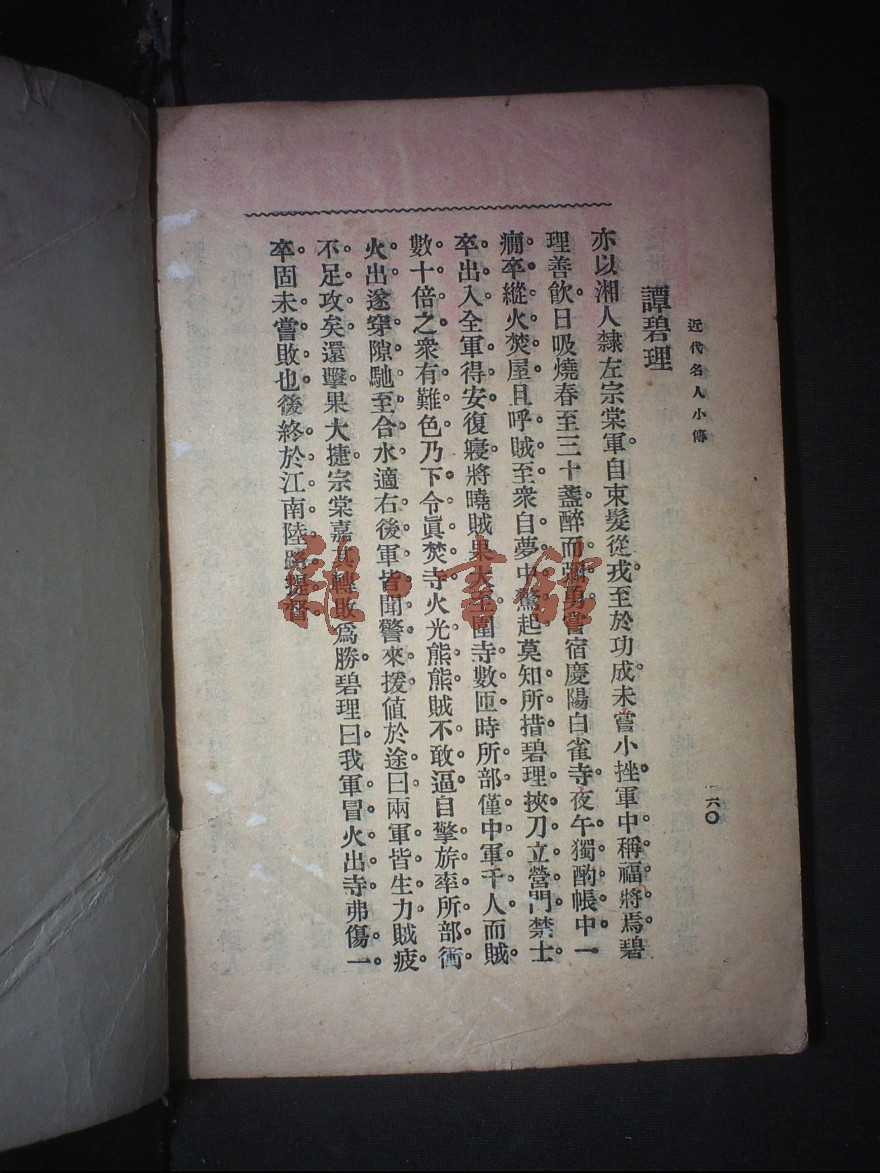 近代名人小傳
六〇
譚碧理
亦以湘人隸左宗棠軍自束髮從戎至於功成未嘗小挫軍中稱福將焉碧
理善飲日吸燒春至三十盞醉而彌勇嘗宿慶陽白雀寺夜午獨酌帳中一
癎卒縱火焚屋且呼賊至衆自夢中驚起莫知所措碧理挾刀立營門禁士
卒出入全軍得安復寢將曉賊果大至圍寺數匝時所部僅中軍千人而賊
數十倍之衆有難色乃下令眞焚寺火光熊熊賊不敢逼自擎旂率所部衝
火出遂穿隙馳至合水適右後軍皆聞警來援值於途曰兩軍皆生力賊疲
不足攻矣還擊果大捷宗棠嘉其轉敗爲勝碧理曰我軍冒火出寺弗傷一
卒固未嘗敗也後終於江南陸路提督
雜·書館